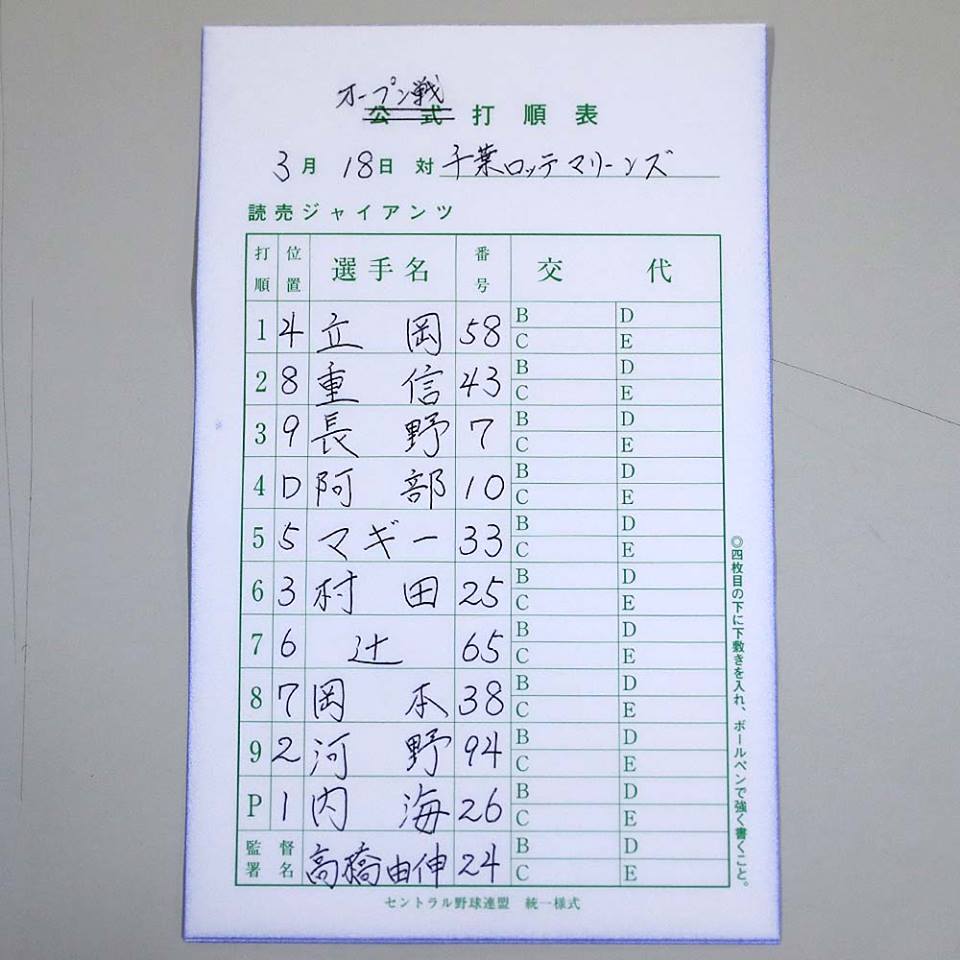 オープン戦
公式打順表
3月18日 対 千葉ロッテマリーンズ
読売ジャイアンツ
打順 位置 選手名 番号 交代
1 4 立岡 58 B D
C E
2 8 重信 43 B D
C E
3 9 長野 7 B D
C E
4 D 阿部 10 B D
C E
5 5 マギー 33 B D
C E
6 3 村田 25 B D
C E
7 6 辻 65 B D
C E
8 7 岡本 38 B D
C E
9 2 河野 94 B D
C E
P 1 内海 26 B D
C E
監督署名 高橋由伸 24 B D
C E
セントラル野球連盟 統一様式
◎四枚目の下に下敷きを入れ、ボールペンで強く書くこと。